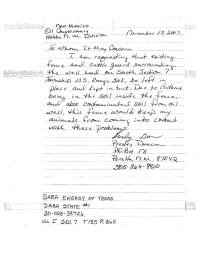 New Mexico
Oil Conservancy
Hobbs N. M. Division
November 19, 2007
To Whom It May Concern
I am requesting that existing
fence and cattle guard surrounding
the well head on South Section 7
Township 13 S. Range 36 E. be left in
place and kept in tact. Due to
being in the soil inside the fence,
and also contaminated soil from oil
well. this fence would keep my
animals from coming into contact
with these problems.
Presley Duncan
P.O. Box
N.M.
SABA ENERGY OF TEXAS
SABA STATE #1
30-025-38726
UL I SEC 7 T13S R36E